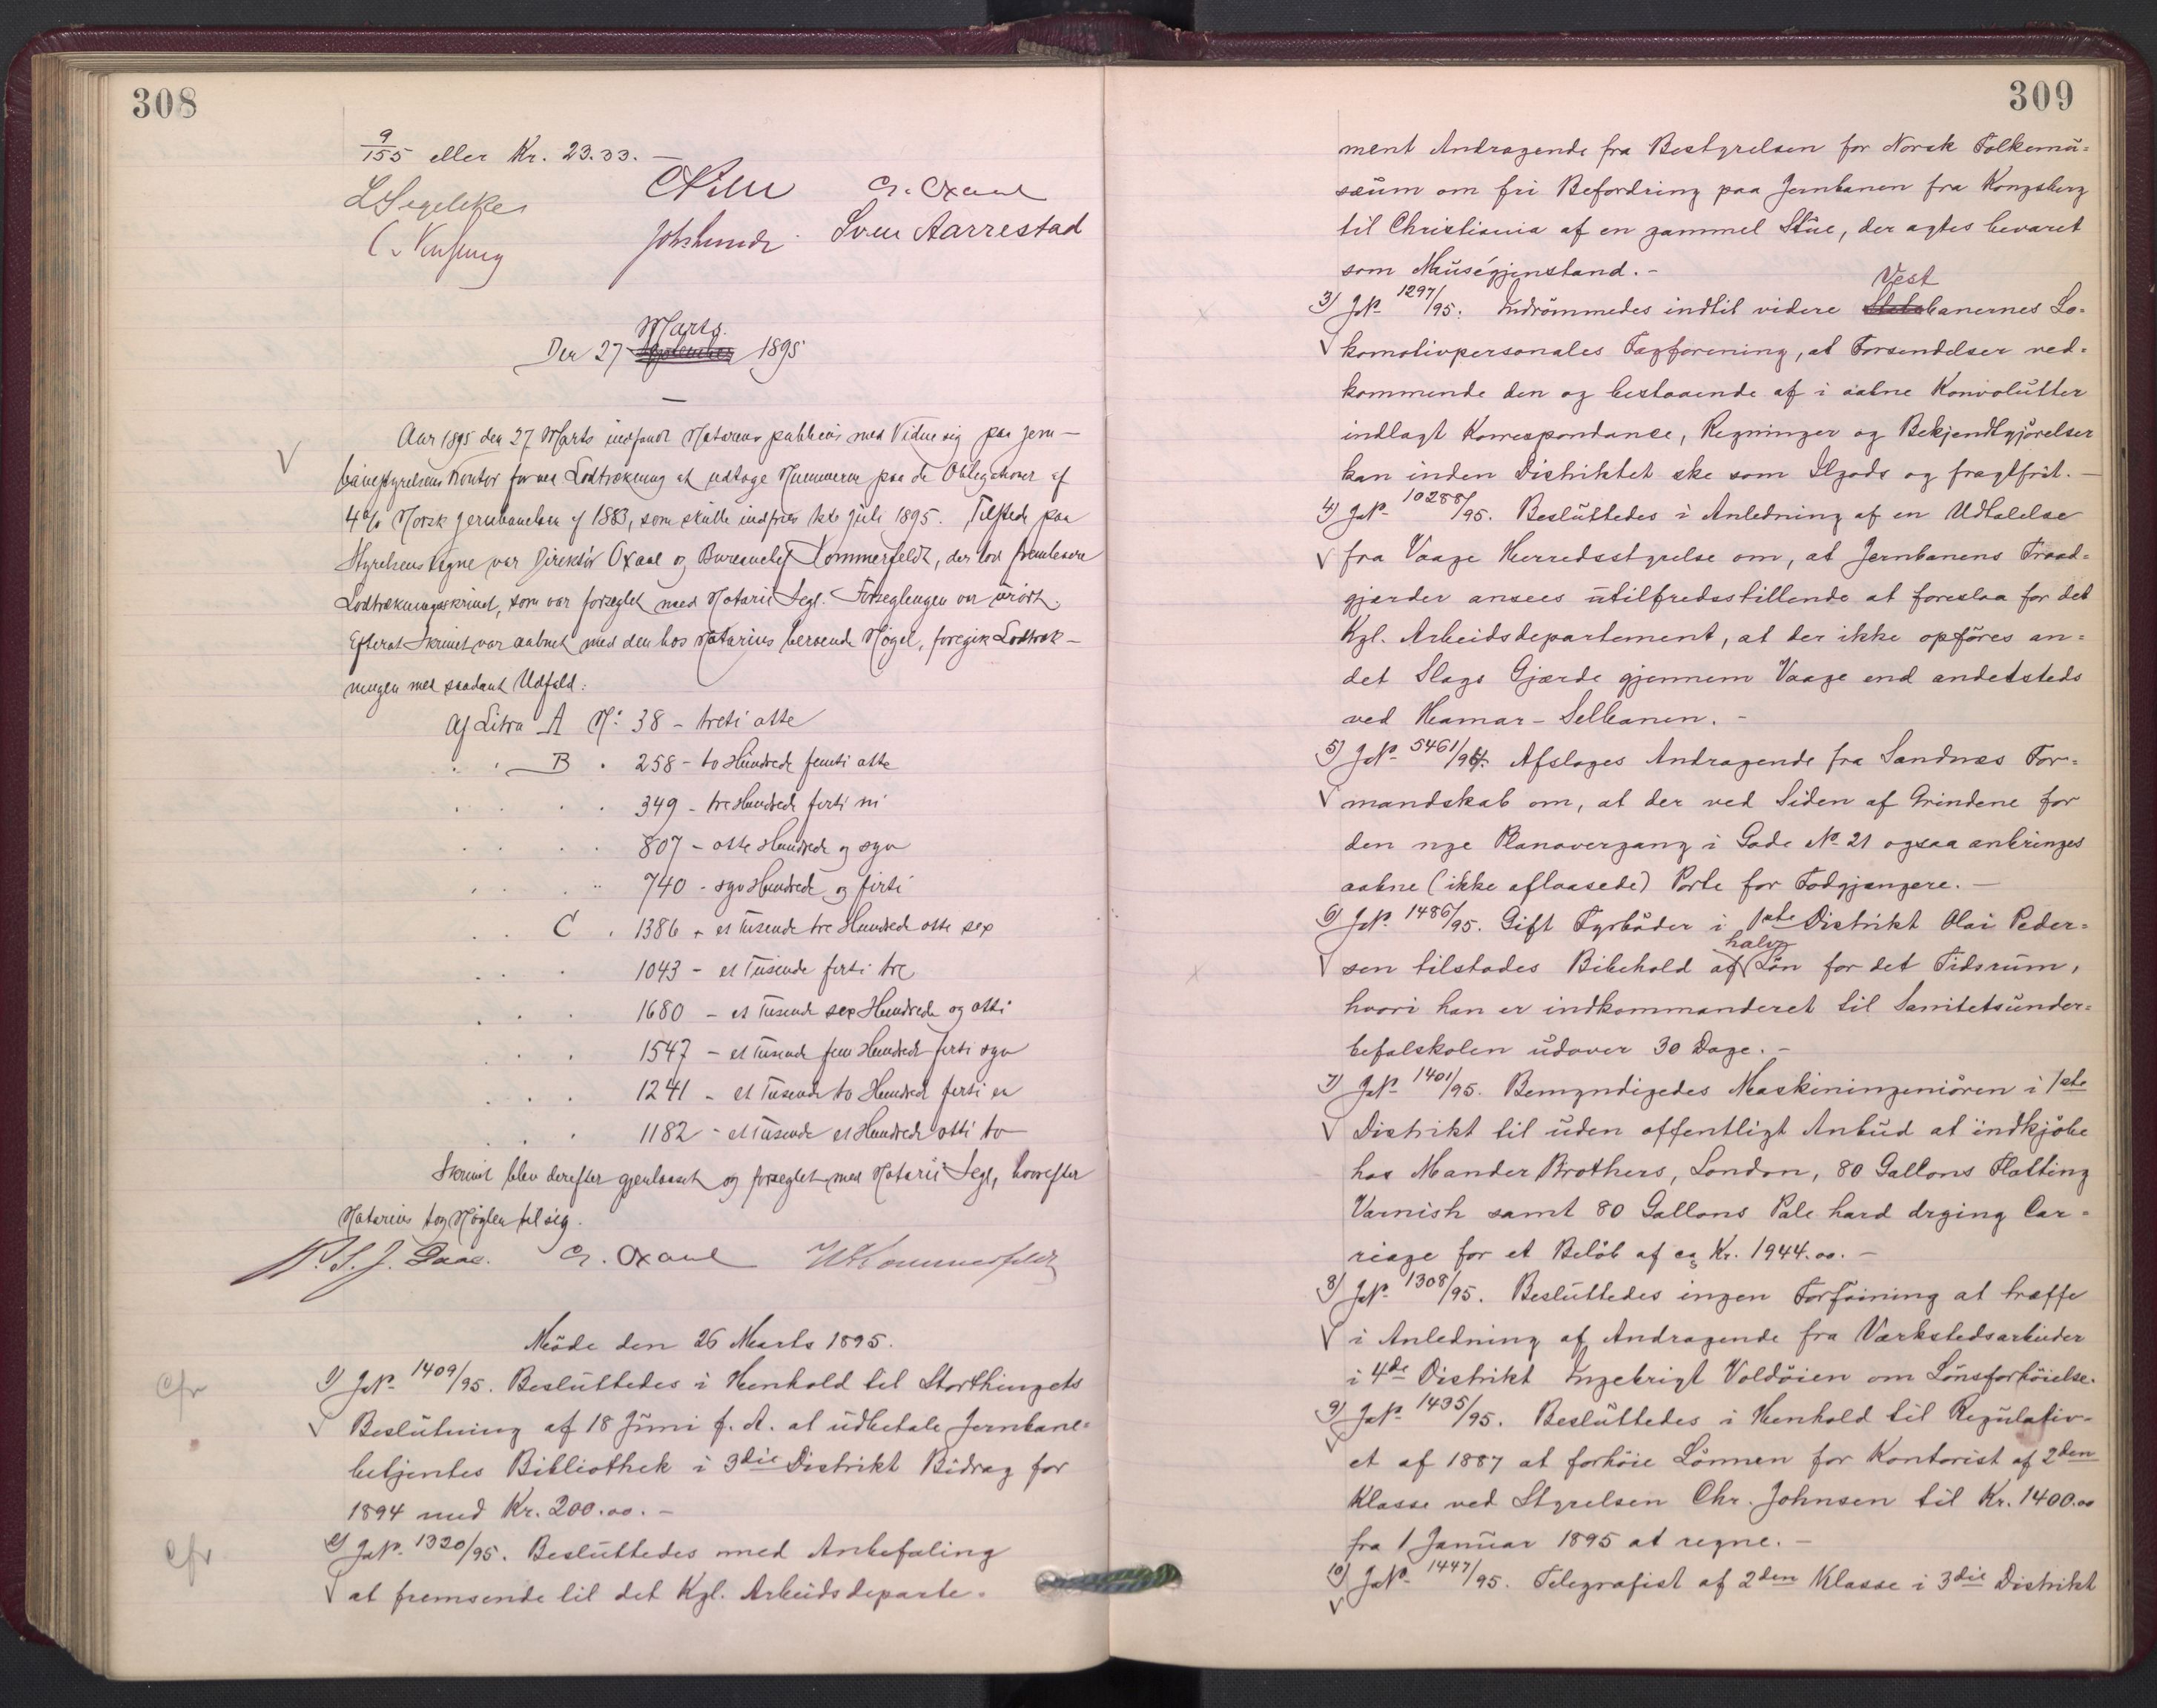 308
9/155 eller Kr. 23.33.-
L Segelcke
Chr. Oxaal
Sven Aarrestad
Marts.
Den 27 September 1895
Aar 1895 den 27 Marts indfandt Notarius publicus med Vidne sig paa Jern-
banestyrelsens Kontor for ved Lodtrækning at udtage Numerene paa de Obligationer af
4 % Norsk Jernbanelaan af 1883, som skulle indfries 1ste Juli 1895. Tilstede paa
Styrelsens Vegne var Direktör Oxaal og Bureauchef Kommerfeldt, der lod frembære
Lodtrækningsskrinet, som var forseglet med Notarii Segl. Forseglingen var urört.
Efterat Skrinet var aabnet med den hos Notarius beroende Nögel, foregik Lodtræk-
ningen med saadant Udfald:
Af Litra A No. 38 - treti otte
. . B . 258 - to Hundrede femti otte
. . . . 349 - tre Hundrede forti ni
. . . . 807 - otte Hundrede og syv
. . . . 740 - syv Hundrede og firti
. . C . 1386 - et Tusende tre Hundrede otte sex
. . . 1043 - et Tusende forti tre
. . . 1680 - et Tusende sex Hundrede og otti
. . . 1547 - et Tusende fem Hundrede forti syv
. . . 1241 - et Tusende to Hundrede forti en
. . . 1182 - et Tusende et Hundrede otti to
Skrinet blev derefter gjenlaaset og forseglet med Notarii Segl, hvorefter
Notarius tog Nöglen til sig.
Daae. Chr. Oxaal Kommerfeldt
Möde den 26 Marts 1895.
cfr 1) JNo. 1409/95. Besluttedes i Henhold til Storthingets
Beslutning af 18 Juni f. A. at udbetale Jernbane=
betjentes Bibliothek i 3die Distrikt Bidrag for
1894 med Kr. 200.00.-
cfr 2) JNo. 1320/95. Besluttedes med Anbefaling
at fremsende til det Kgl. Arbeidsdeparte=
309
ment Andragende fra Bestyrelsen for Norsk Folkemu=
sæum om fri Befordring paa Jernbanen fra Kongsberg
til Christiania af en gammel Stue, der agtes bevaret
som Muségjenstand.-
Vest
3) JNo. 1297/95. Indrömmedes indtil videre Statsbanernes Lo=
komotivpersonales Fagforening, at Forsendelser ved=
kommende den og bestaaende af i aabne Konvolutter
indlagt Korrespondance, Regninger og Bekjendtgjörelser
kan inden Distriktet ske som Ilgods og fragtfrit.-
4) JNo. 10288/95. Besluttedes i Anledning af en Udtalelse
fra Vaage Herredsstyrelse om, at Jernbanens Traad=
gjærder ansees utilfredsstillende at foreslaa for det
Kgl. Arbeidsdepartement, at der ikke opföres an=
det Slags Gjærde gjennem Vaage end andetsteds
ved Hamar-Selbanen.-
5) JNo. 5461/94. Afsloges Andragende fra Sandnæs For=
mandskab om, at der ved Siden af Grindene for
den nye Planovergang i Gade No. 21 ogsaa anbringes
aabne (ikke aflaasede) Porte for Fodgjængere.-
6) JNo. 1486/95. Gift Fyrböder i 1ste Distrikt Olai Peder=
halv
sen tilstodes Bibehold af Lön for det Tidsrum,
hvori han er indkommanderet til Sanitetsunder=
befalskolen udover 30 Dage.-
7) JNo. 1401/95. Bemyndigedes Maskiningeniören i 1ste
Distrikt til uden offentligt Anbud at indkjöbe
hos Mander Brothers, London, 80 Gallons Flatting
Varnish samt 80 Gallons Pale hard drying Car=
riage for et Belöb af ca Kr. 1944.00.-
8) JNo. 1308/95. Besluttedes ingen Forföining at træffe
i Anledning af Andragende fra Værkstedsarbeider
i 4de Distrikt Ingebrigt Voldöien om Lönsforhöielse.
9) JNo. 1435/95. Besluttedes i Henhold til Regulativ=
et af 1887 at forhöie Lönnen for Kontorist af 2den
Klasse ved Styrelsen Chr. Johnsen til Kr. 1400.00
fra 1 Januar 1895 at regne.-
10) JNo. 1447/95. Telegrafist af 2den Klasse i 3die Distrikt